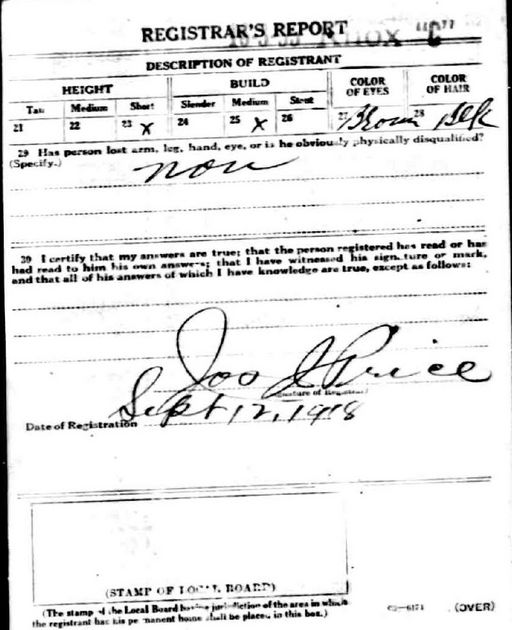 REGISTRAR'S REPORT
KNOX C
DESCRIPTION OF REGISTRANT
HEIGHT BUILD COLOR OF EYES COLOR OF HAIR
Tall Medium Short Slender Medium Stout
21 22 23 X 24 25 X 26 27 Brown 28 Blk
29 Has person lost arm, leg, hand, eye, or is he obviously physically disqualified?
(Specify.) non
30 I certify that my answers are true; that the person registered has read or has
had read to him his own answers; that I have witnessed his signature or mark,
and that all of his answers of which I have knowledge are true, except as follows:
Joo J Price
(Signature of Registrar)
Date of Registration Sept 12, 1918
(STAMP OF LOCAL BOARD)
(The stamp of the Local Board having jurisdiction of the area in which
the registrant has his permanent home shall be placed in this box.)
03—6171 (OVER)